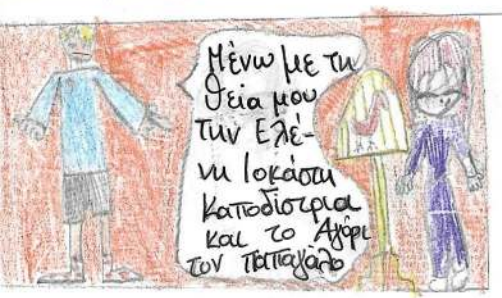 Μένω με τη
θεία μου
την Ελέ-
νη Ιοκάστη
Καποδίστρια
και το Αγόρι
τον παπαγάλο